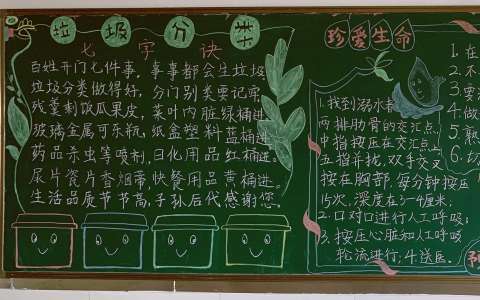 垃圾分类
七字诀
百姓开门七件事，事事都会生垃圾。
垃圾分类做得好，分门别类要记牢。
残羹剩饭瓜果皮，菜叶内脏绿桶进。
玻璃金属可乐瓶，纸盒塑料蓝桶进。
药品杀虫等喷剂，日化用品红桶进。
尿片瓷片香烟蒂，快餐用品黄桶进。
生活品质节节高，子孙后代感谢您。
珍爱生命
1.找到溺水者
两排肋骨的交汇点，
中指按压在交汇点上
五指并拢，双手交叉
按在胸部，每分钟按压
15次，深度在3-4厘米；
2.口对口进行人工呼吸；
3.按压心脏和人工呼吸
轮流进行；4送医。
1.在
2.不
3.要
4.做
5.熟
6.切